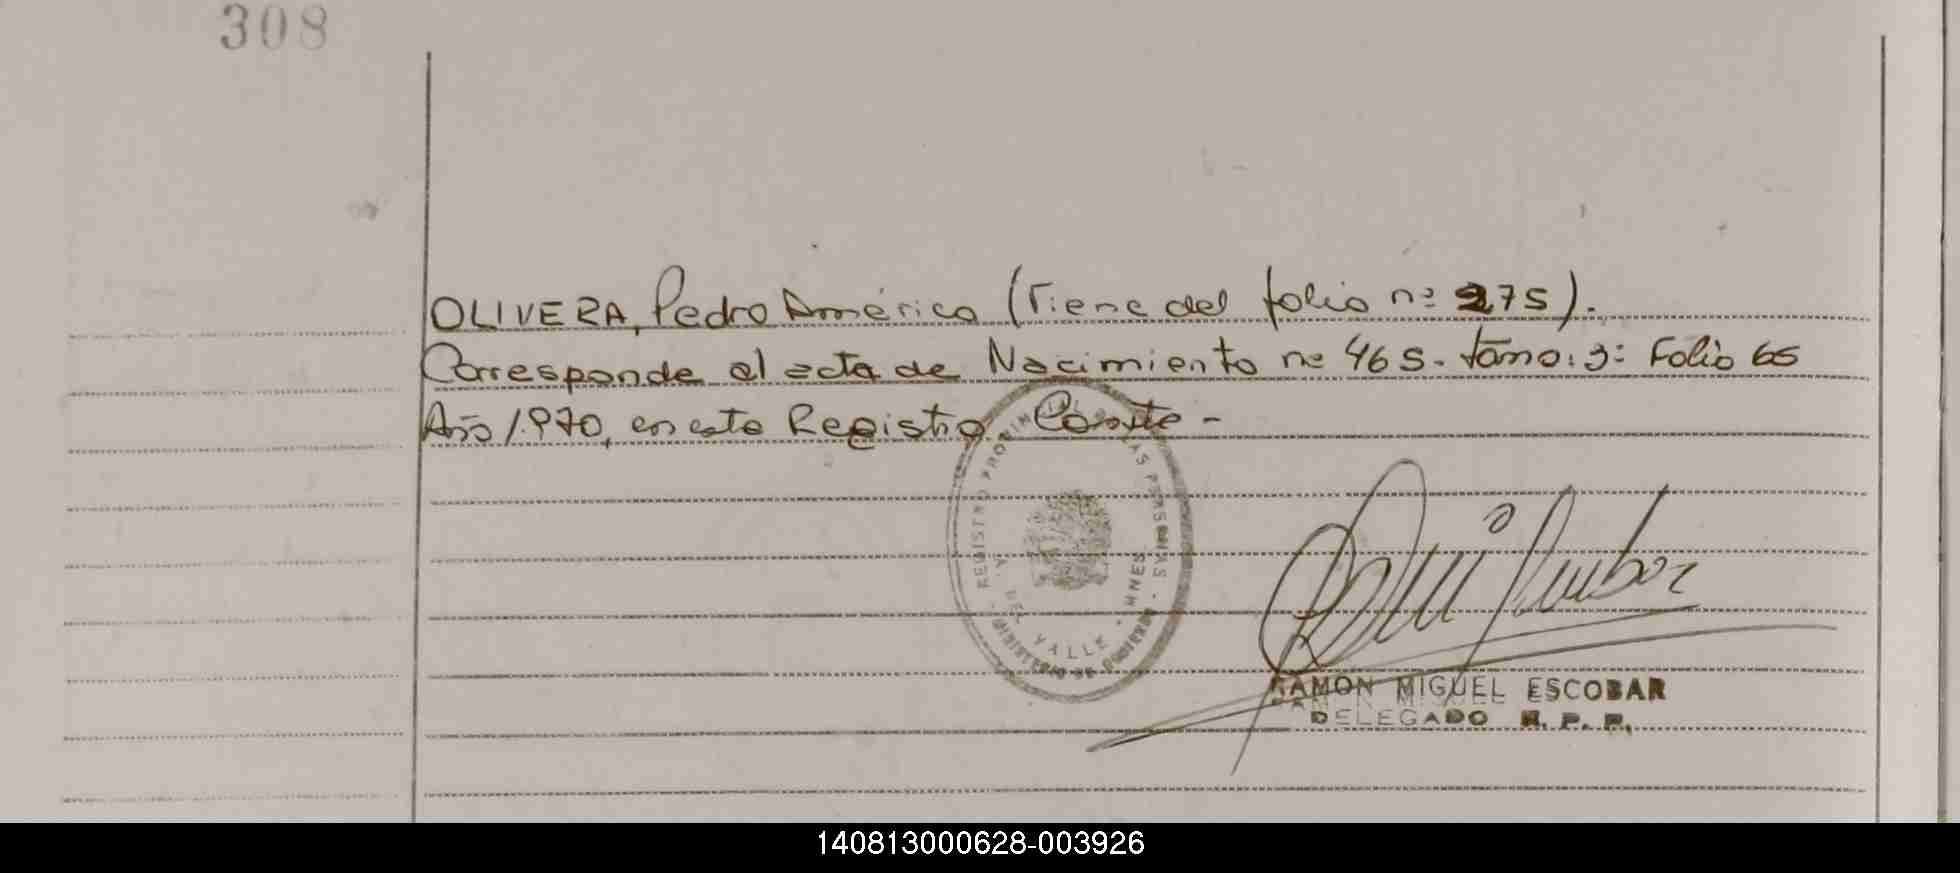 308
OLIVERA, Pedro Américo (Viene del folio nº 275).
Corresponde al acta de Nacimiento nº 465. tomo: 3: Folio 65
Año 1.970, en este Registro Conste -
REGISTRO PROVIN LAS PERSONAS
DEL VALLE - MNES
MINISTERIO DE GOBIERNO
RAMON MIGUEL ESCOBAR
DELEGADO R. P. P.
140813000628-003926